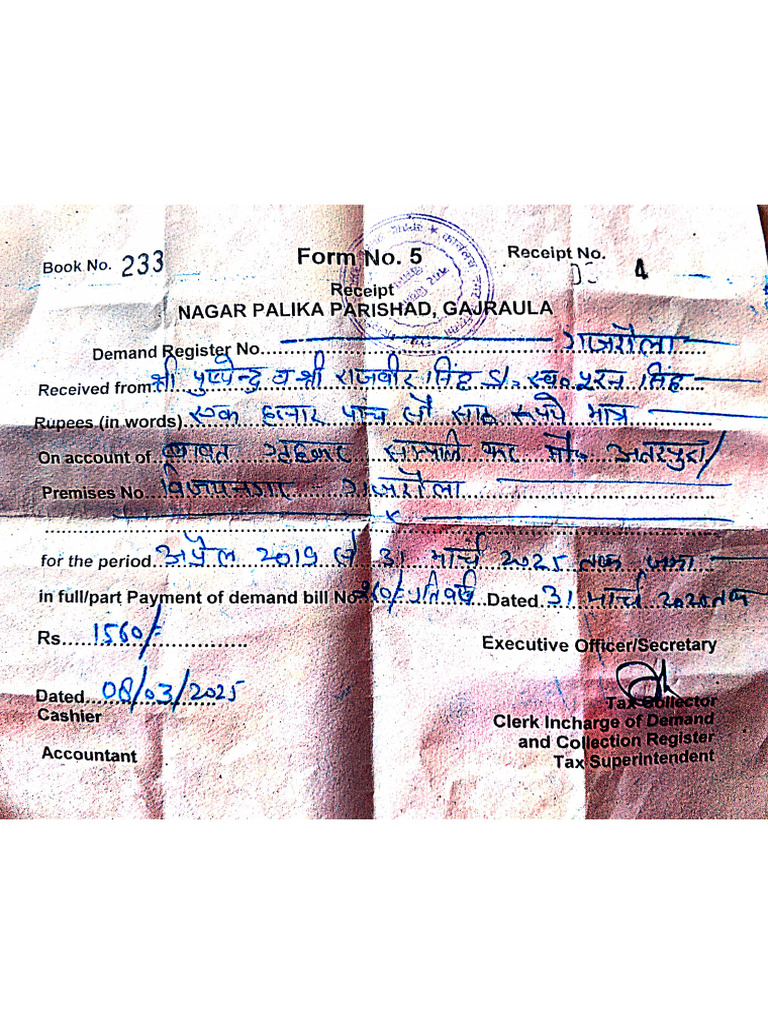 Book No. 233
Form No. 5
Receipt No. 4
Receipt
NAGAR PALIKA PARISHAD, GAJRAULA
Demand Register No. गजरौला
Received from श्री पुष्पेन्द्र व श्री राजवीर सिंह S/o स्व० पूरन सिंह
Rupees (in words) एक हजार पांच सौ साठ रूपये मात्र
On account of बावत गृहकर सम्पत्ति कर मौ०
Premises No. विजयनगर गजरौला
for the period. अप्रैल 2019 से 31 मार्च 2025 तक जमा
in full/part Payment of demand bill No. प्रतिवर्ष Dated 31 मार्च तक
Rs. 1560/-
Executive Officer/Secretary
Dated 08/03/2025
Tax Collector
Cashier
Clerk Incharge of Demand
and Collection Register
Accountant
Tax Superintendent